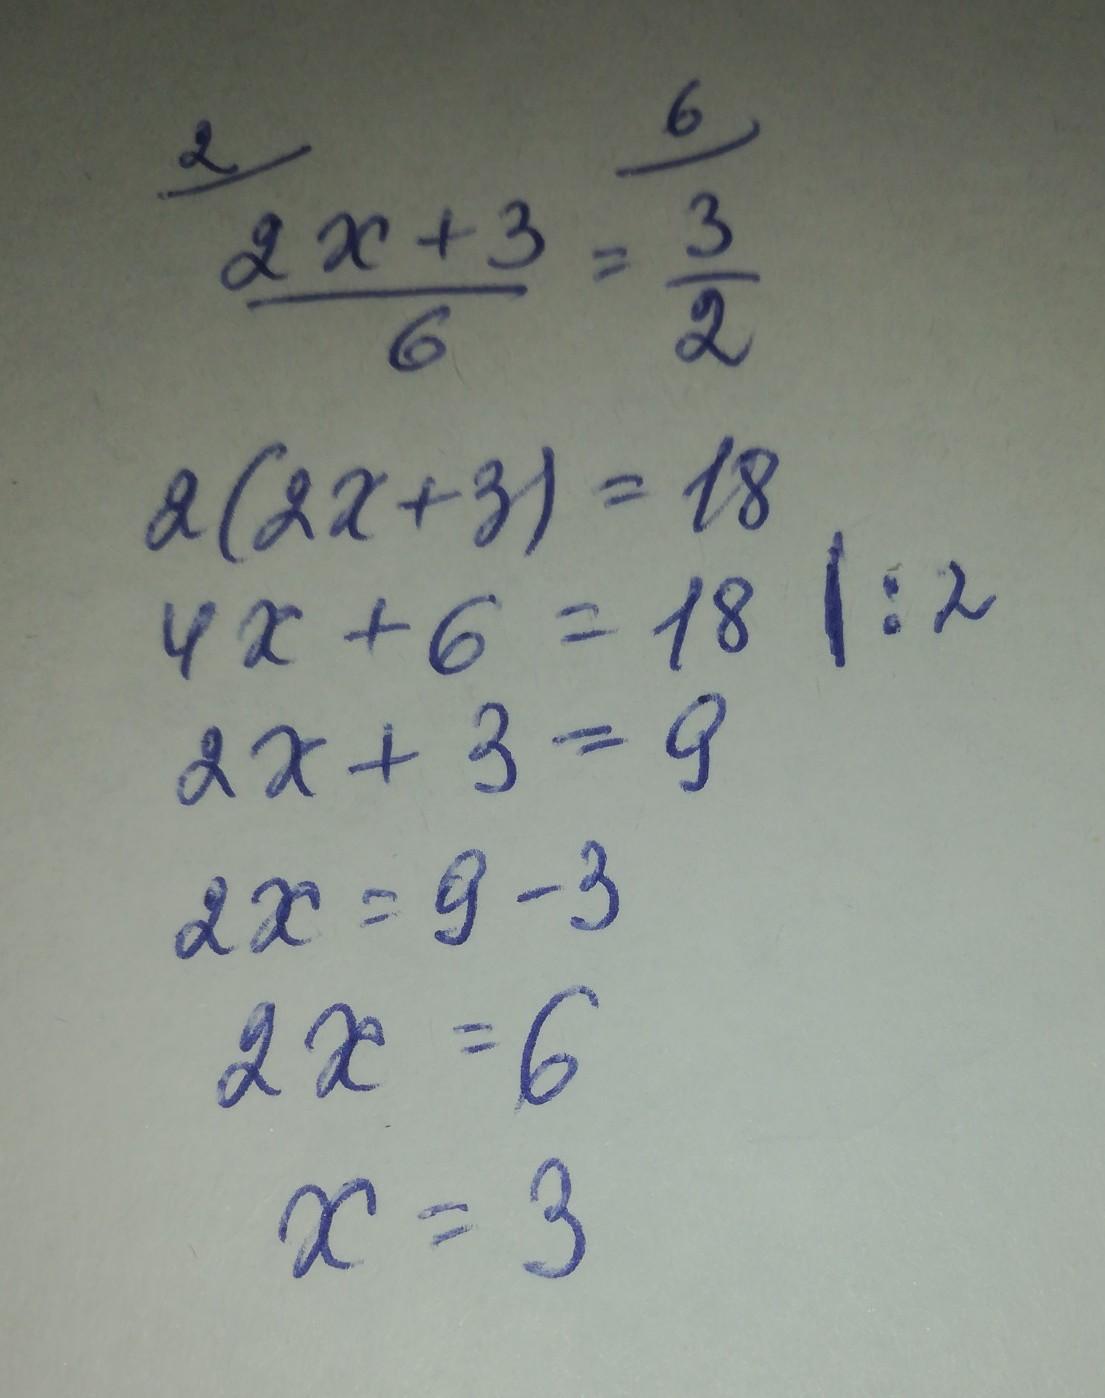 2 6
2x+3 = 3
6 2
2(2x+3) = 18
4x + 6 = 18 | : 2
2x + 3 = 9
2x = 9 - 3
2x = 6
x = 3